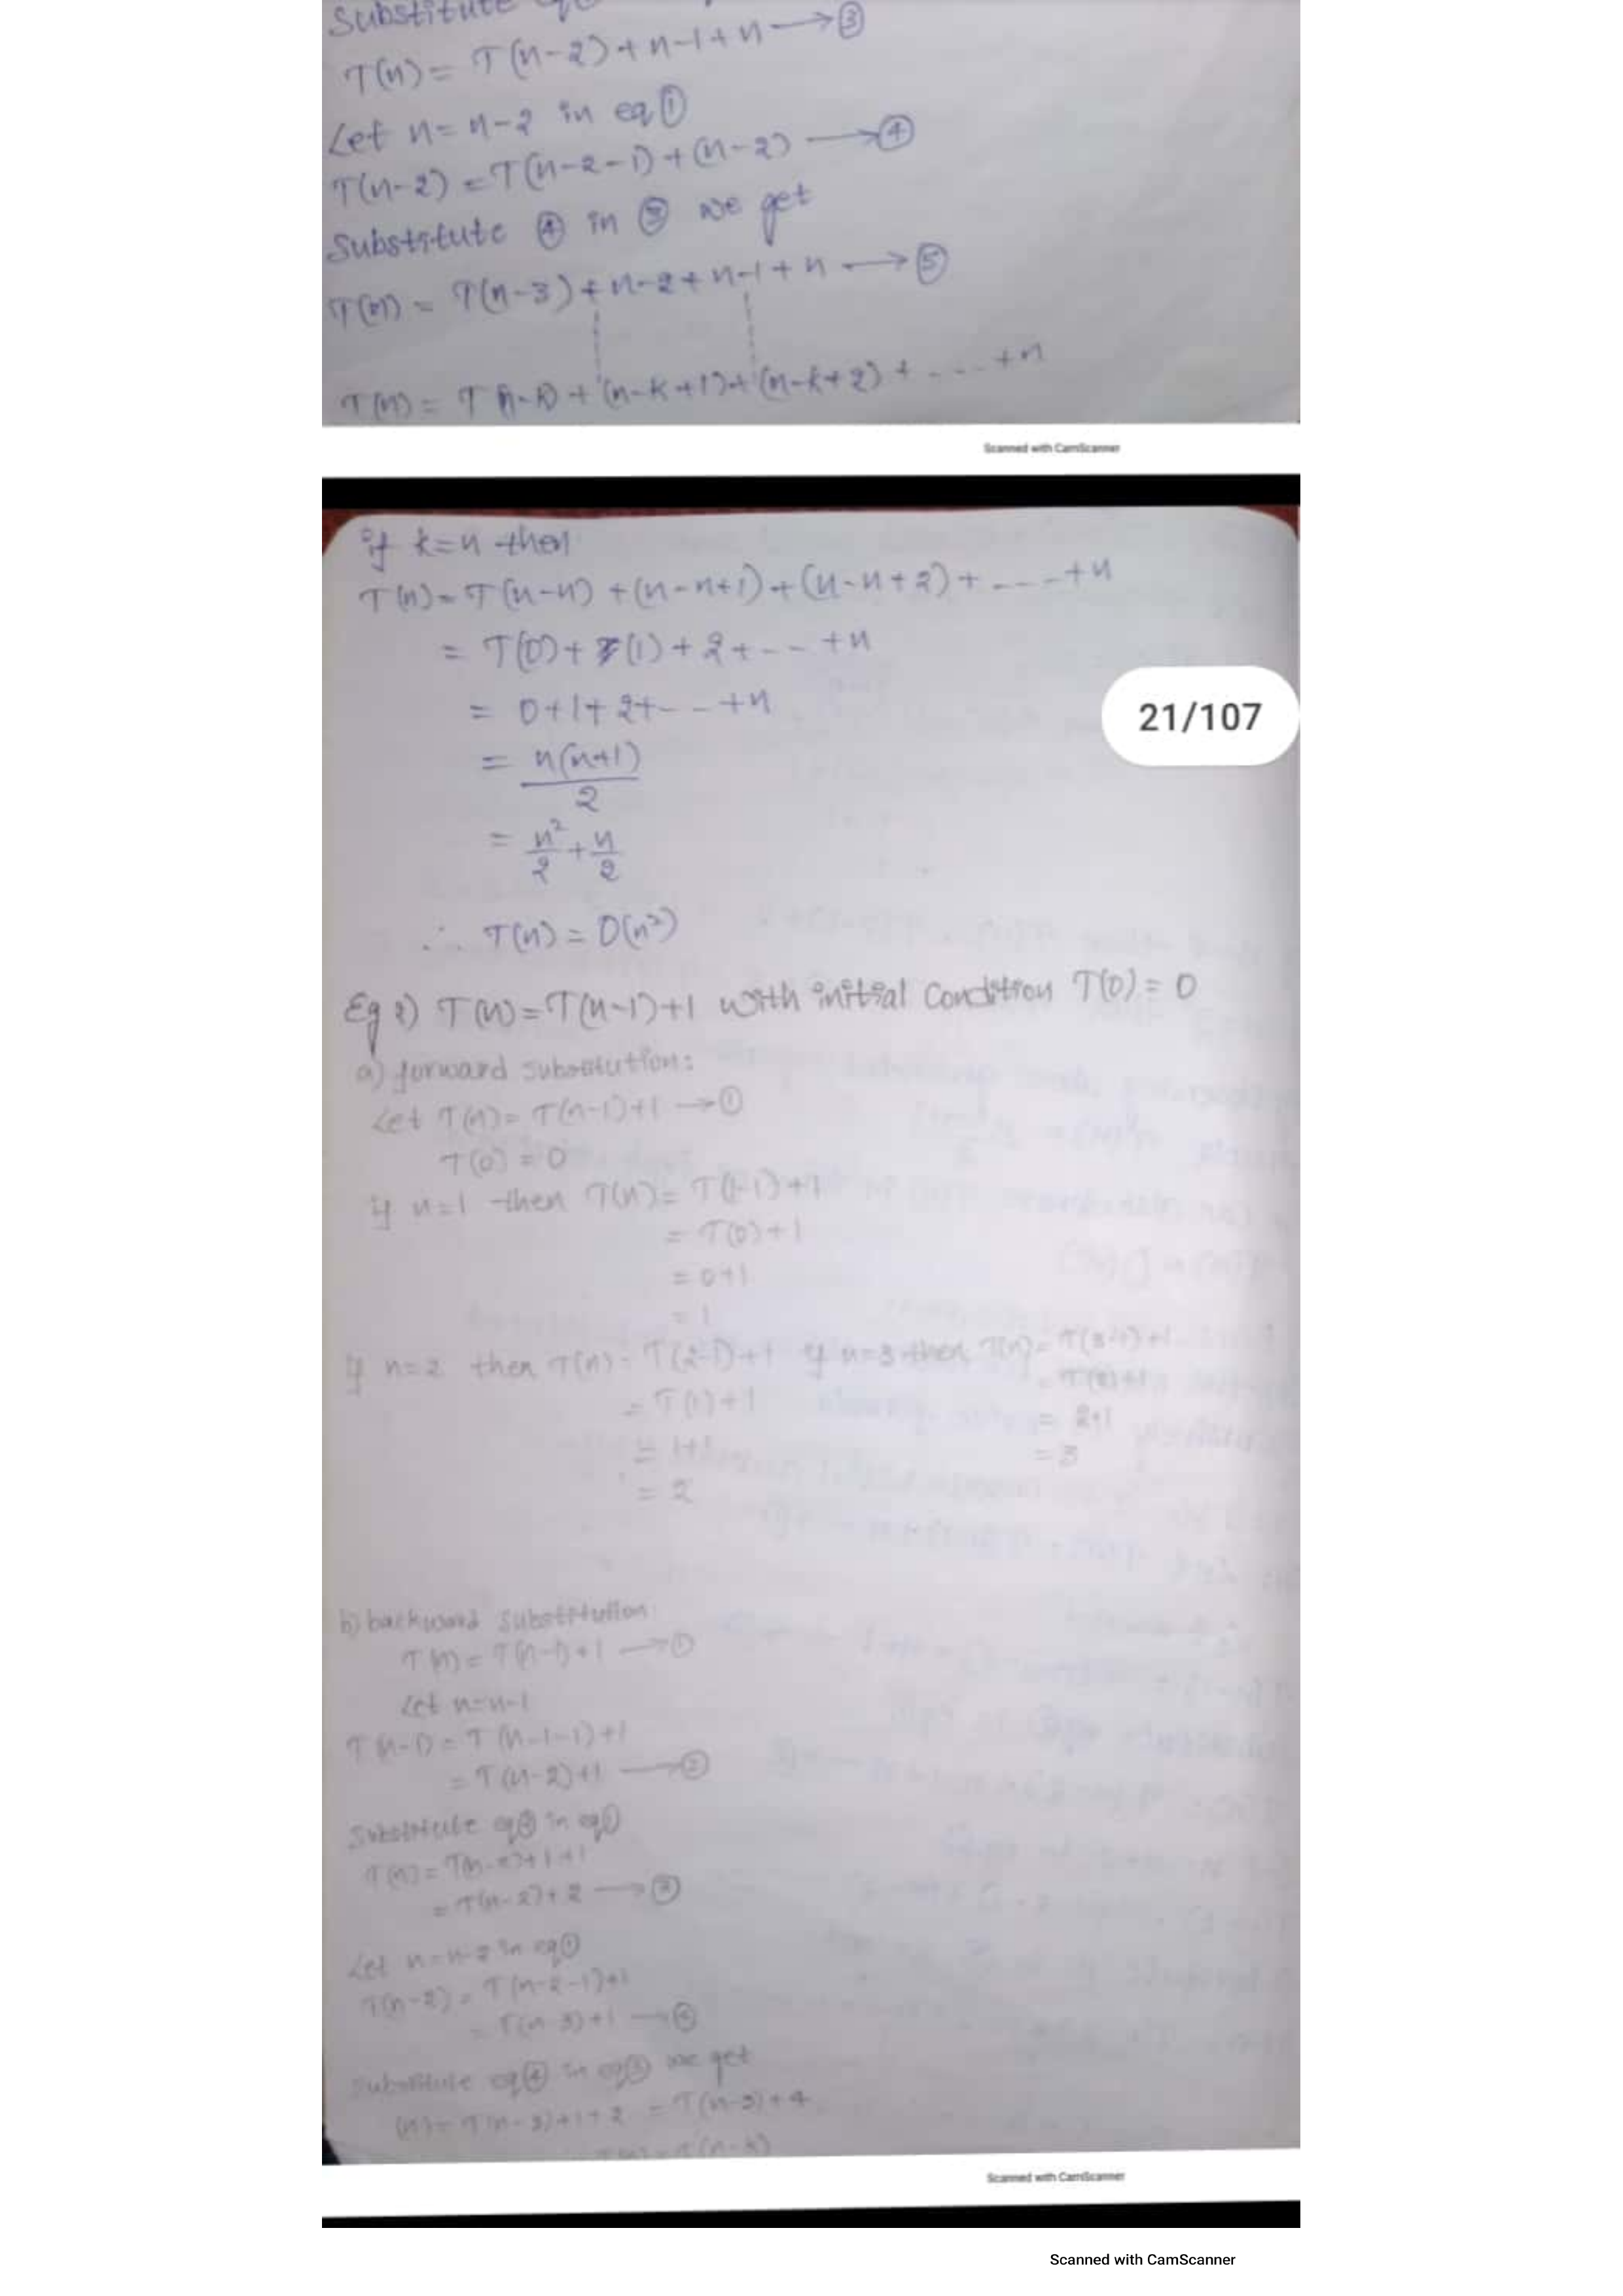 Substitute
T(n) = T(n-2)+n-1+n → ③
Let n = n-2 in eq ①
T(n-2) = T(n-2-1)+(n-2) → ④
Substitute ④ in ③ we get
T(n) = T(n-3)+n-2+n-1+n → ⑤
T(n) = T(n-k)+(n-k+1)+(n-k+2)+ .... +n
Scanned with CamScanner
if k=n then
T(n) = T(n-n)+(n-n+1)+(n-n+2)+ ---- +n
= T(0)+(1)+2+--- +n
= 0+1+2+--- +n
= n(n+1)
2
= n²/2 + n/2
∴ T(n) = O(n²)
21/107
Eg 2) T(n)=T(n-1)+1 with initial Condition T(0)=0
a) forward substution:
Let T(n)= T(n-1)+1 → ①
T(0) = 0
if n=1 then T(n)= T(1-1)+1
= T(0)+1
= 0+1
= 1
if n=2 then T(n)= T(2-1)+1 if n=3 then T(n)= T(3-1)+1
= T(1)+1 = T(2)+1
= 1+1 = 2+1
= 2 = 3
b) backward substitution:
T(n)= T(n-1)+1 → ①
Let n=n-1
T(n-1)= T(n-1-1)+1
= T(n-2)+1 → ②
Substitute eq② in eq①
T(n)= T(n-2)+1+1
= T(n-2)+2 → ③
Let n=n-2 in eq①
T(n-2)= T(n-2-1)+1
= T(n-3)+1 → ④
Substitute eq④ in eq③ we get
(n)= T(n-3)+1+2 = T(n-3)+4
Scanned with CamScanner
Scanned with CamScanner